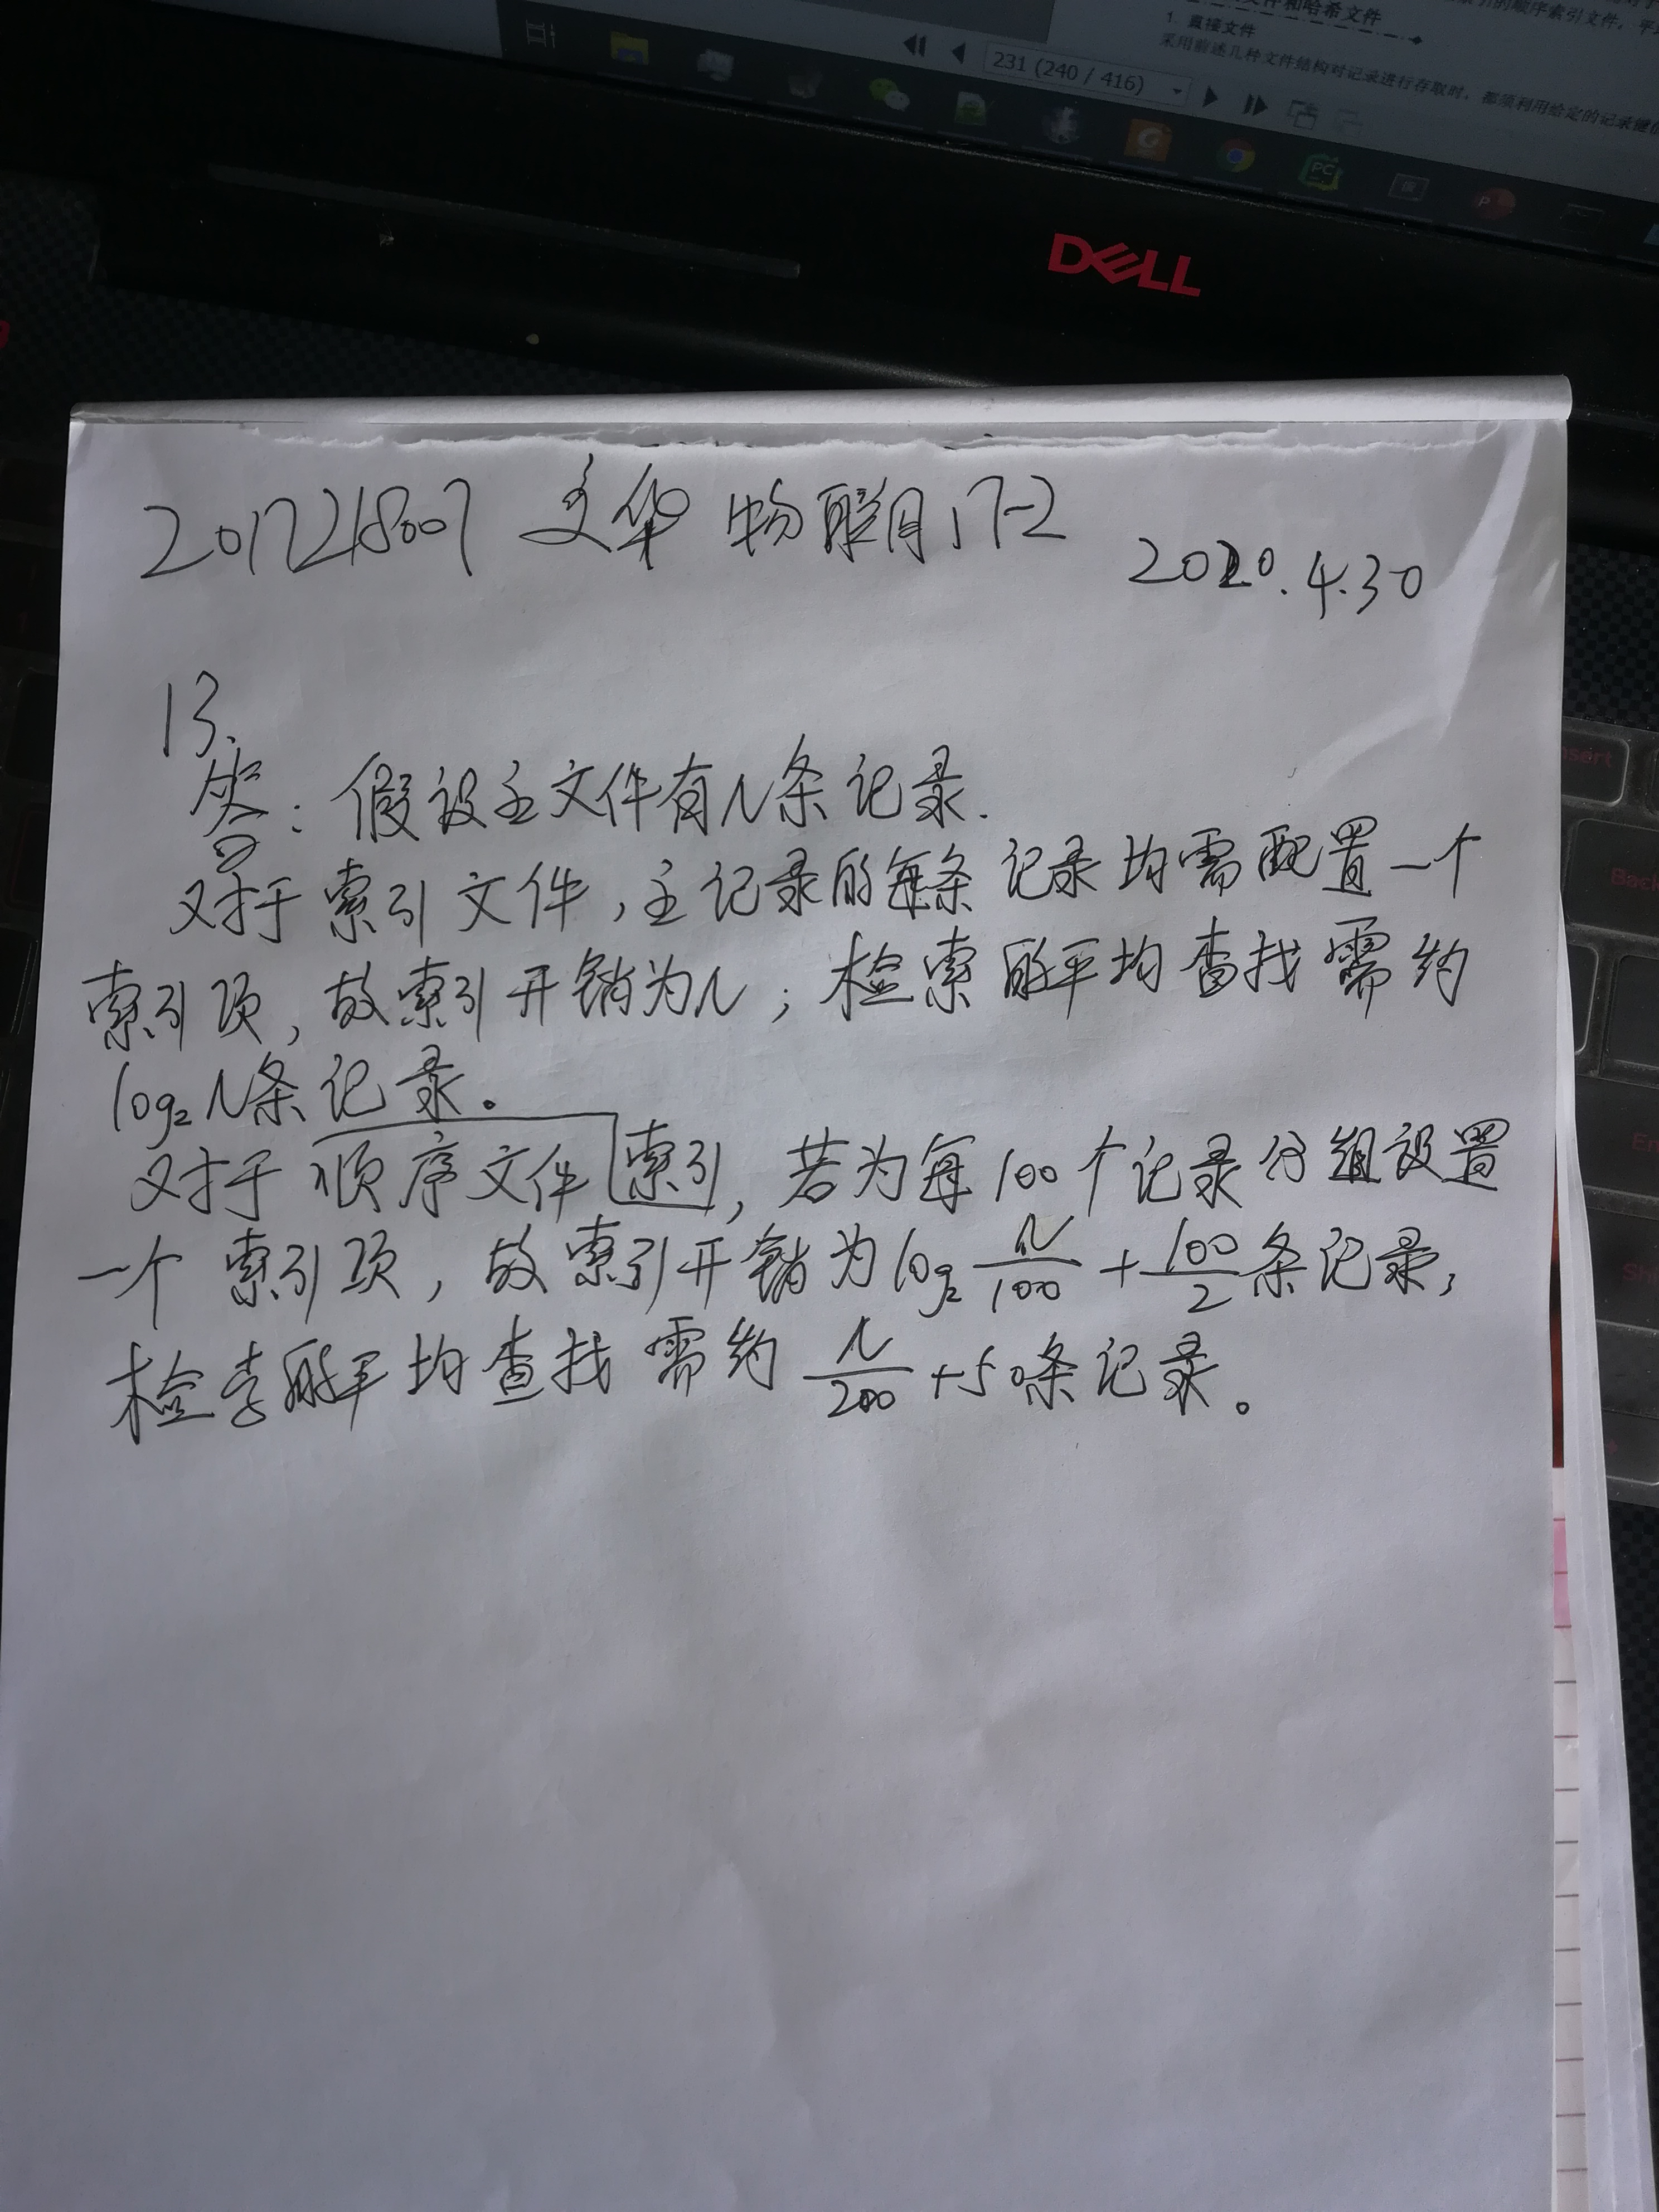 文件和哈希文件
引的顺序索引文件，平
1. 直接文件
采用前述几种文件结构对记录进行存取时，都须利用给定的记录键
231 (240 / 416)
DELL
2017218007 文华 物联网17-2
2020.4.30
13.
答：假设主文件有N条记录.
对于索引文件，主记录的每条记录均需配置一个
索引项，故索引开销为N；检索的平均查找需约
log₂N条记录。
对于顺序文件索引，若为每100个记录分组设置
一个索引项，故索引开销为log₂ N/100 + 100/2条记录，
检索的平均查找需约 N/200 +50条记录。